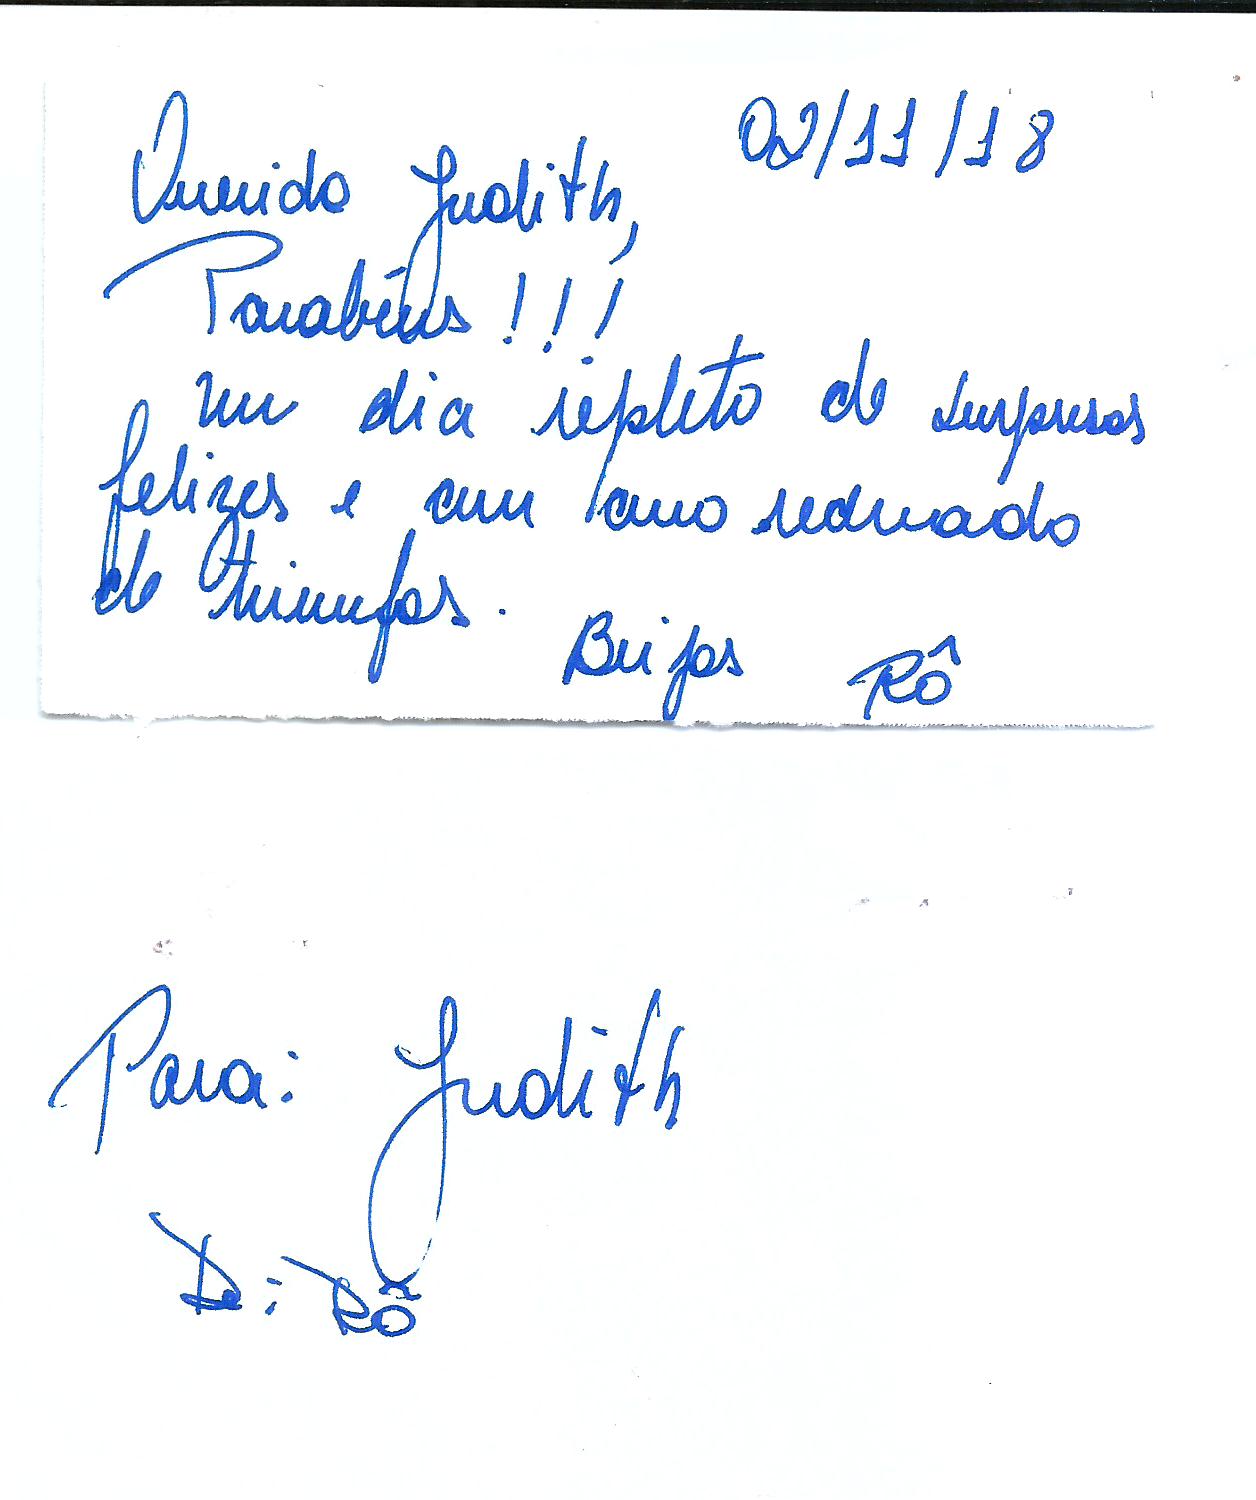 02/11/18
Querida Judith,
Parabéns!!!
um dia repleto de surpresas
felizes e um ano redmado
de triunfos.
Beijos Rô
Para: Judith
De: Rô